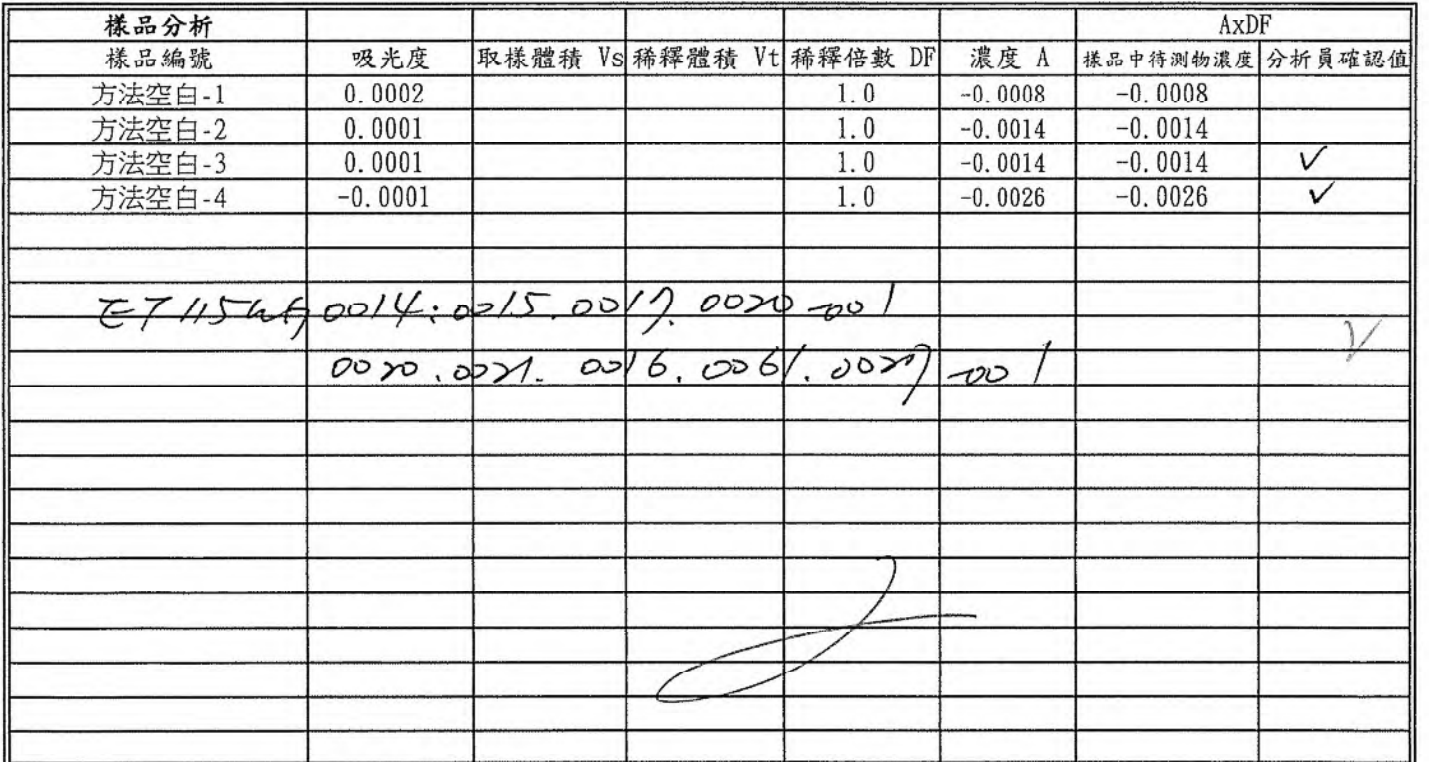 樣品分析 AxDF
樣品編號 吸光度 取樣體積 Vs 稀釋體積 Vt 稀釋倍數 DF 濃度 A 樣品中待測物濃度 分析員確認值
方法空白-1 0.0002 1.0 -0.0008 -0.0008
方法空白-2 0.0001 1.0 -0.0014 -0.0014
方法空白-3 0.0001 1.0 -0.0014 -0.0014 ✓
方法空白-4 -0.0001 1.0 -0.0026 -0.0026 ✓
0014. 0015. 0017. 0020-001
0020. 0021. 0016. 0061. 0027-001